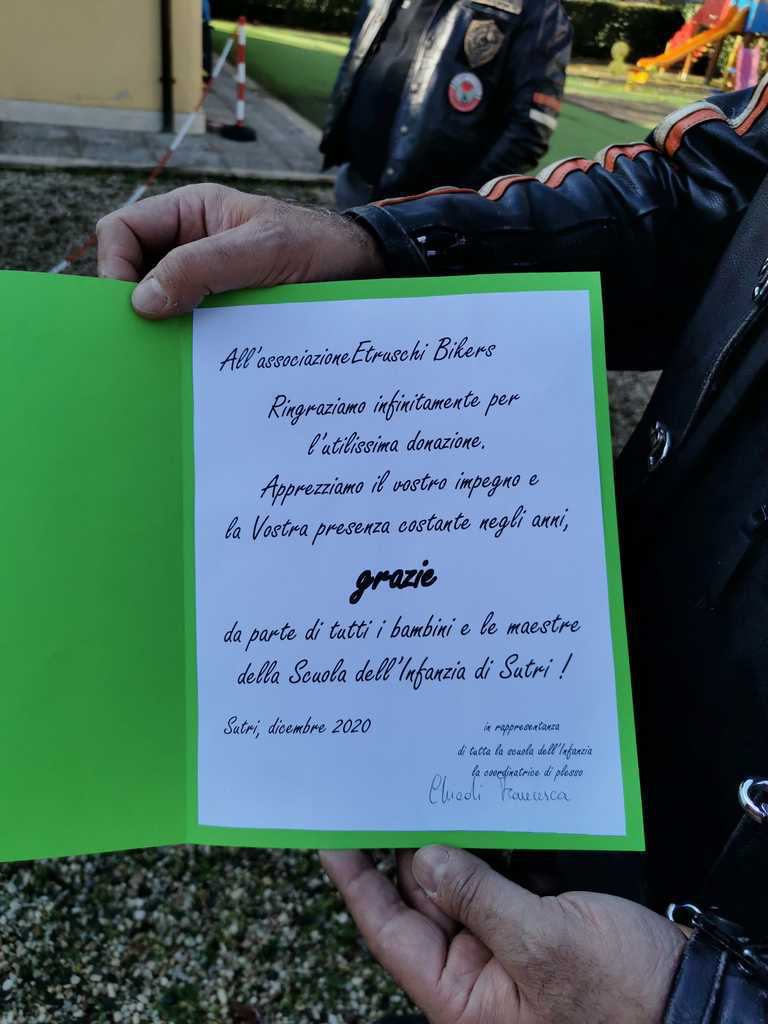 All'associazione Etruschi Bikers
Ringraziamo infinitamente per
l'utilissima donazione.
Apprezziamo il vostro impegno e
la Vostra presenza costante negli anni,
grazie
da parte di tutti i bambini e le maestre
della Scuola dell'Infanzia di Sutri !
Sutri, dicembre 2020
in rappresentanza
di tutta la scuola dell'Infanzia
la coordinatrice di plesso
Francesca